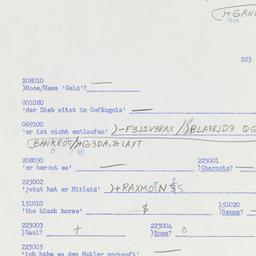 )+GAN
GIR
223
208010
)Moos/Mees 'Geld'? —
001080
'der Dieb sitzt im Gefängnis' —
069100
'er ist nicht entlaufen' )-F3J1V3RAX / )BLA58JD3
BANKROT/)+G3DA,J+LAXT
208050
'er bereut es' —
223001
)Charoots? —
223002
'jetzt hat er Mitleid' )+RAXMO5N$S
151010
'the black horse' $
151020
)Gaumm? —
223003
)Gaul? +
223004
)Ross? 0
223005
'ich habe an den Makler verkauft'